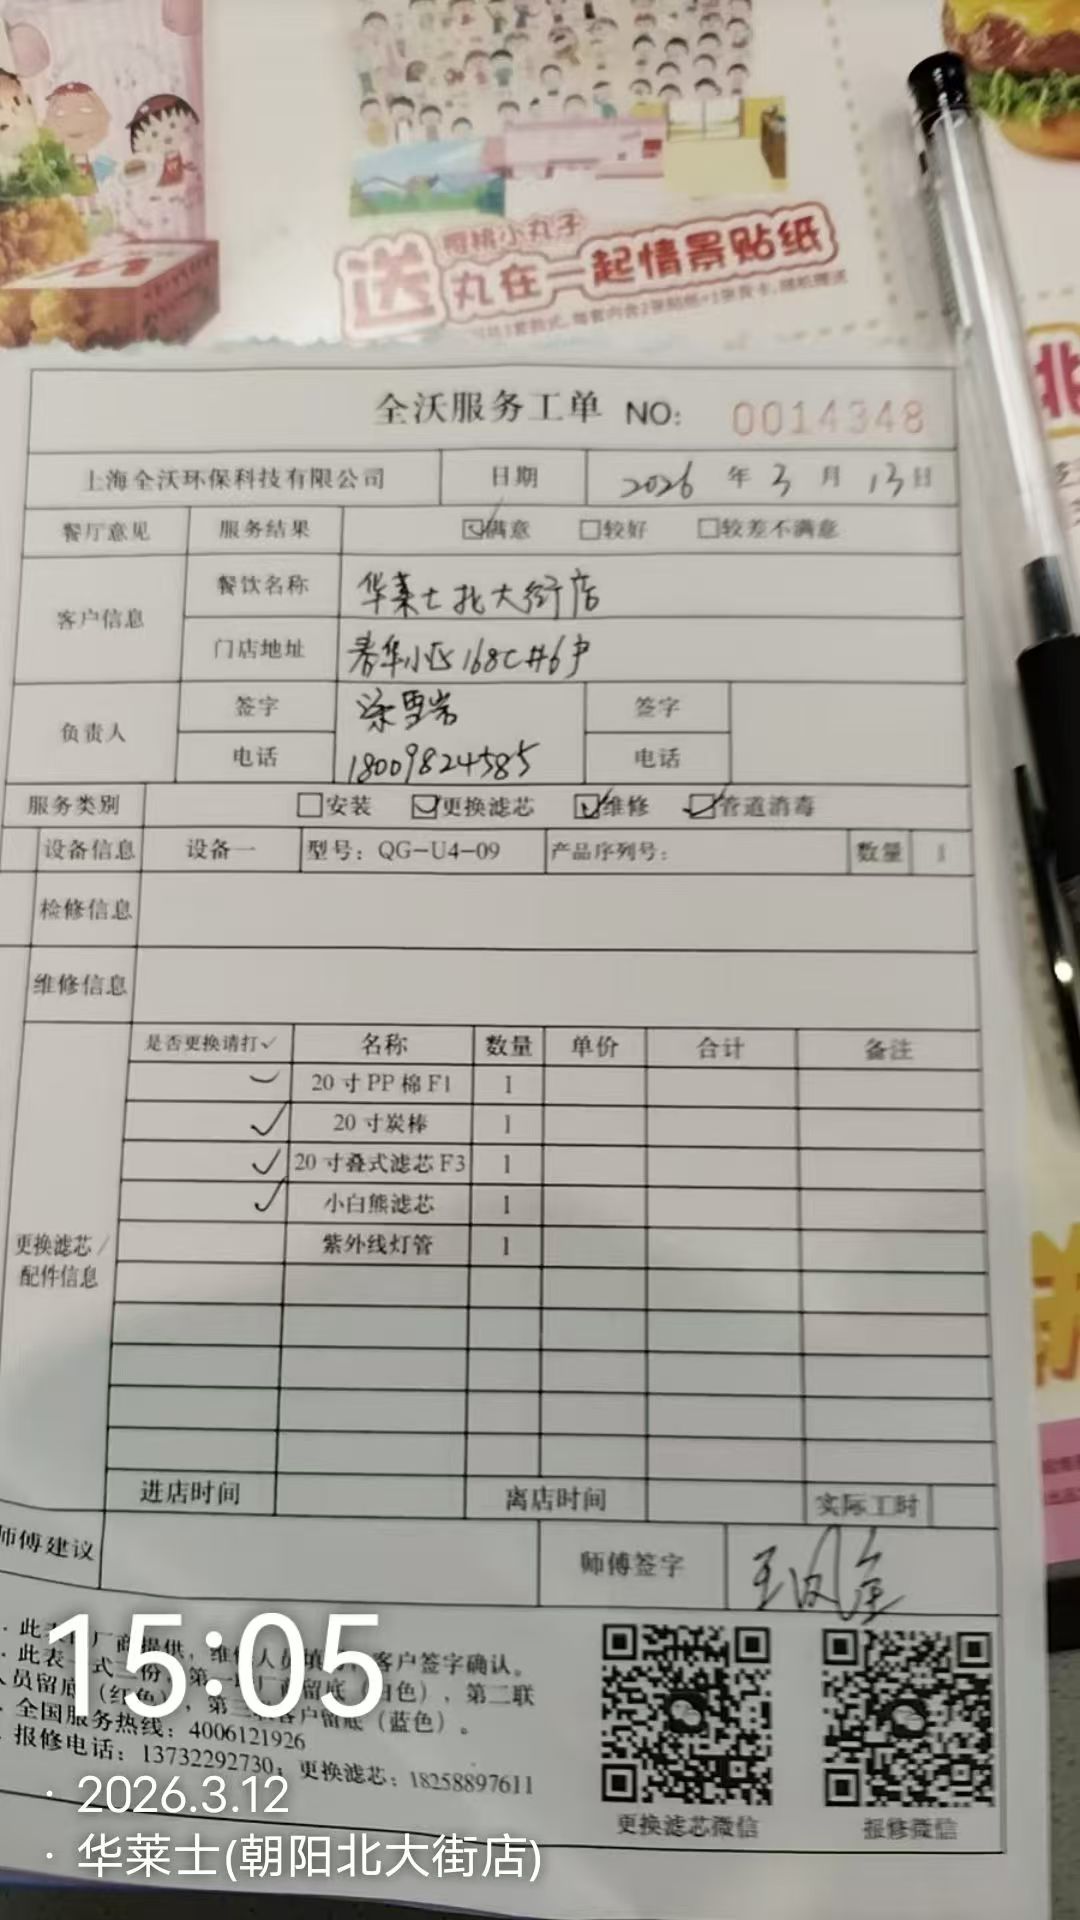 送
樱桃小丸子
丸在一起情景贴纸
全沃服务工单 NO: 0014348
上海全沃环保科技有限公司 日期 2026 年 3 月 13 日
餐厅意见 服务结果 ☑满意 □较好 □较差不满意
客户信息 餐饮名称 华莱士北大街店
门店地址 春华小区168C#6户
负责人 签字 签字
电话 18009824585 电话
服务类别 □安装 ☑更换滤芯 ☑维修 ☑管道消毒
设备信息 设备一 型号: QG-U4-09 产品序列号: 数量 1
检修信息
维修信息
更换滤芯/配件信息
是否更换请打✓ 名称 数量 单价 合计 备注
✓ 20寸PP棉F1 1
✓ 20寸炭棒 1
✓ 20寸叠式滤芯F3 1
✓ 小白熊滤芯 1
紫外线灯管 1
进店时间 离店时间 实际工时
师傅建议 师傅签字
此表 厂商提供, 维 人员填 客户签字确认。
此表一式 份, 第一 留底(白色), 第二联
人员留底(红色), 第三 客户留底(蓝色)。
全国服务热线: 4006121926
报修电话: 13732292730; 更换滤芯: 18258897611
更换滤芯微信 报修微信
15:05
· 2026.3.12
· 华莱士(朝阳北大街店)